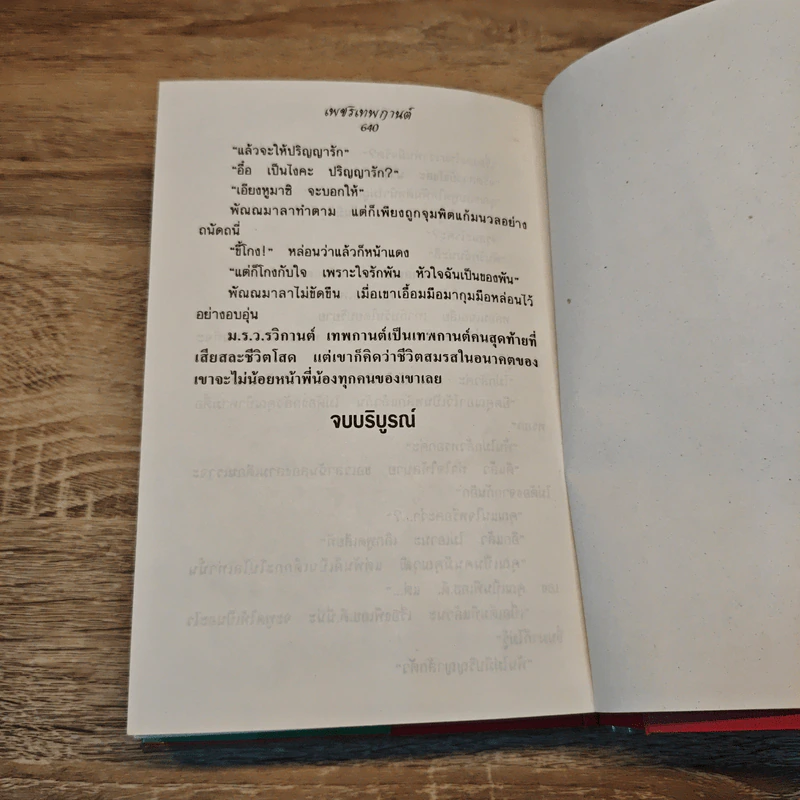 เพชรเทพกานต์
640
"แล้วจะให้ปริญญารัก"
"อื๋อ เป็นไงคะ ปริญญารัก?"
"เอียงหูมาซิ จะบอกให้"
พัณณมาลาทำตาม แต่ก็เพียงถูกจุมพิตแก้มนวลอย่าง
ถนัดถนี่
"ขี้โกง!" หล่อนว่าแล้วก็หน้าแดง
"แต่ก็โกงกับใจ เพราะใจรักพัน หัวใจฉันเป็นของพัน"
พัณณมาลาไม่ขัดขืน เมื่อเขาเอื้อมมือมากุมมือหล่อนไว้
อย่างอบอุ่น
ม.ร.ว.รวิกานต์ เทพกานต์เป็นเทพกานต์คนสุดท้ายที่
เสียสละชีวิตโสด แต่เขาก็คิดว่าชีวิตสมรสในอนาคตของ
เขาจะไม่น้อยหน้าพี่น้องทุกคนของเขาเลย
จบบริบูรณ์